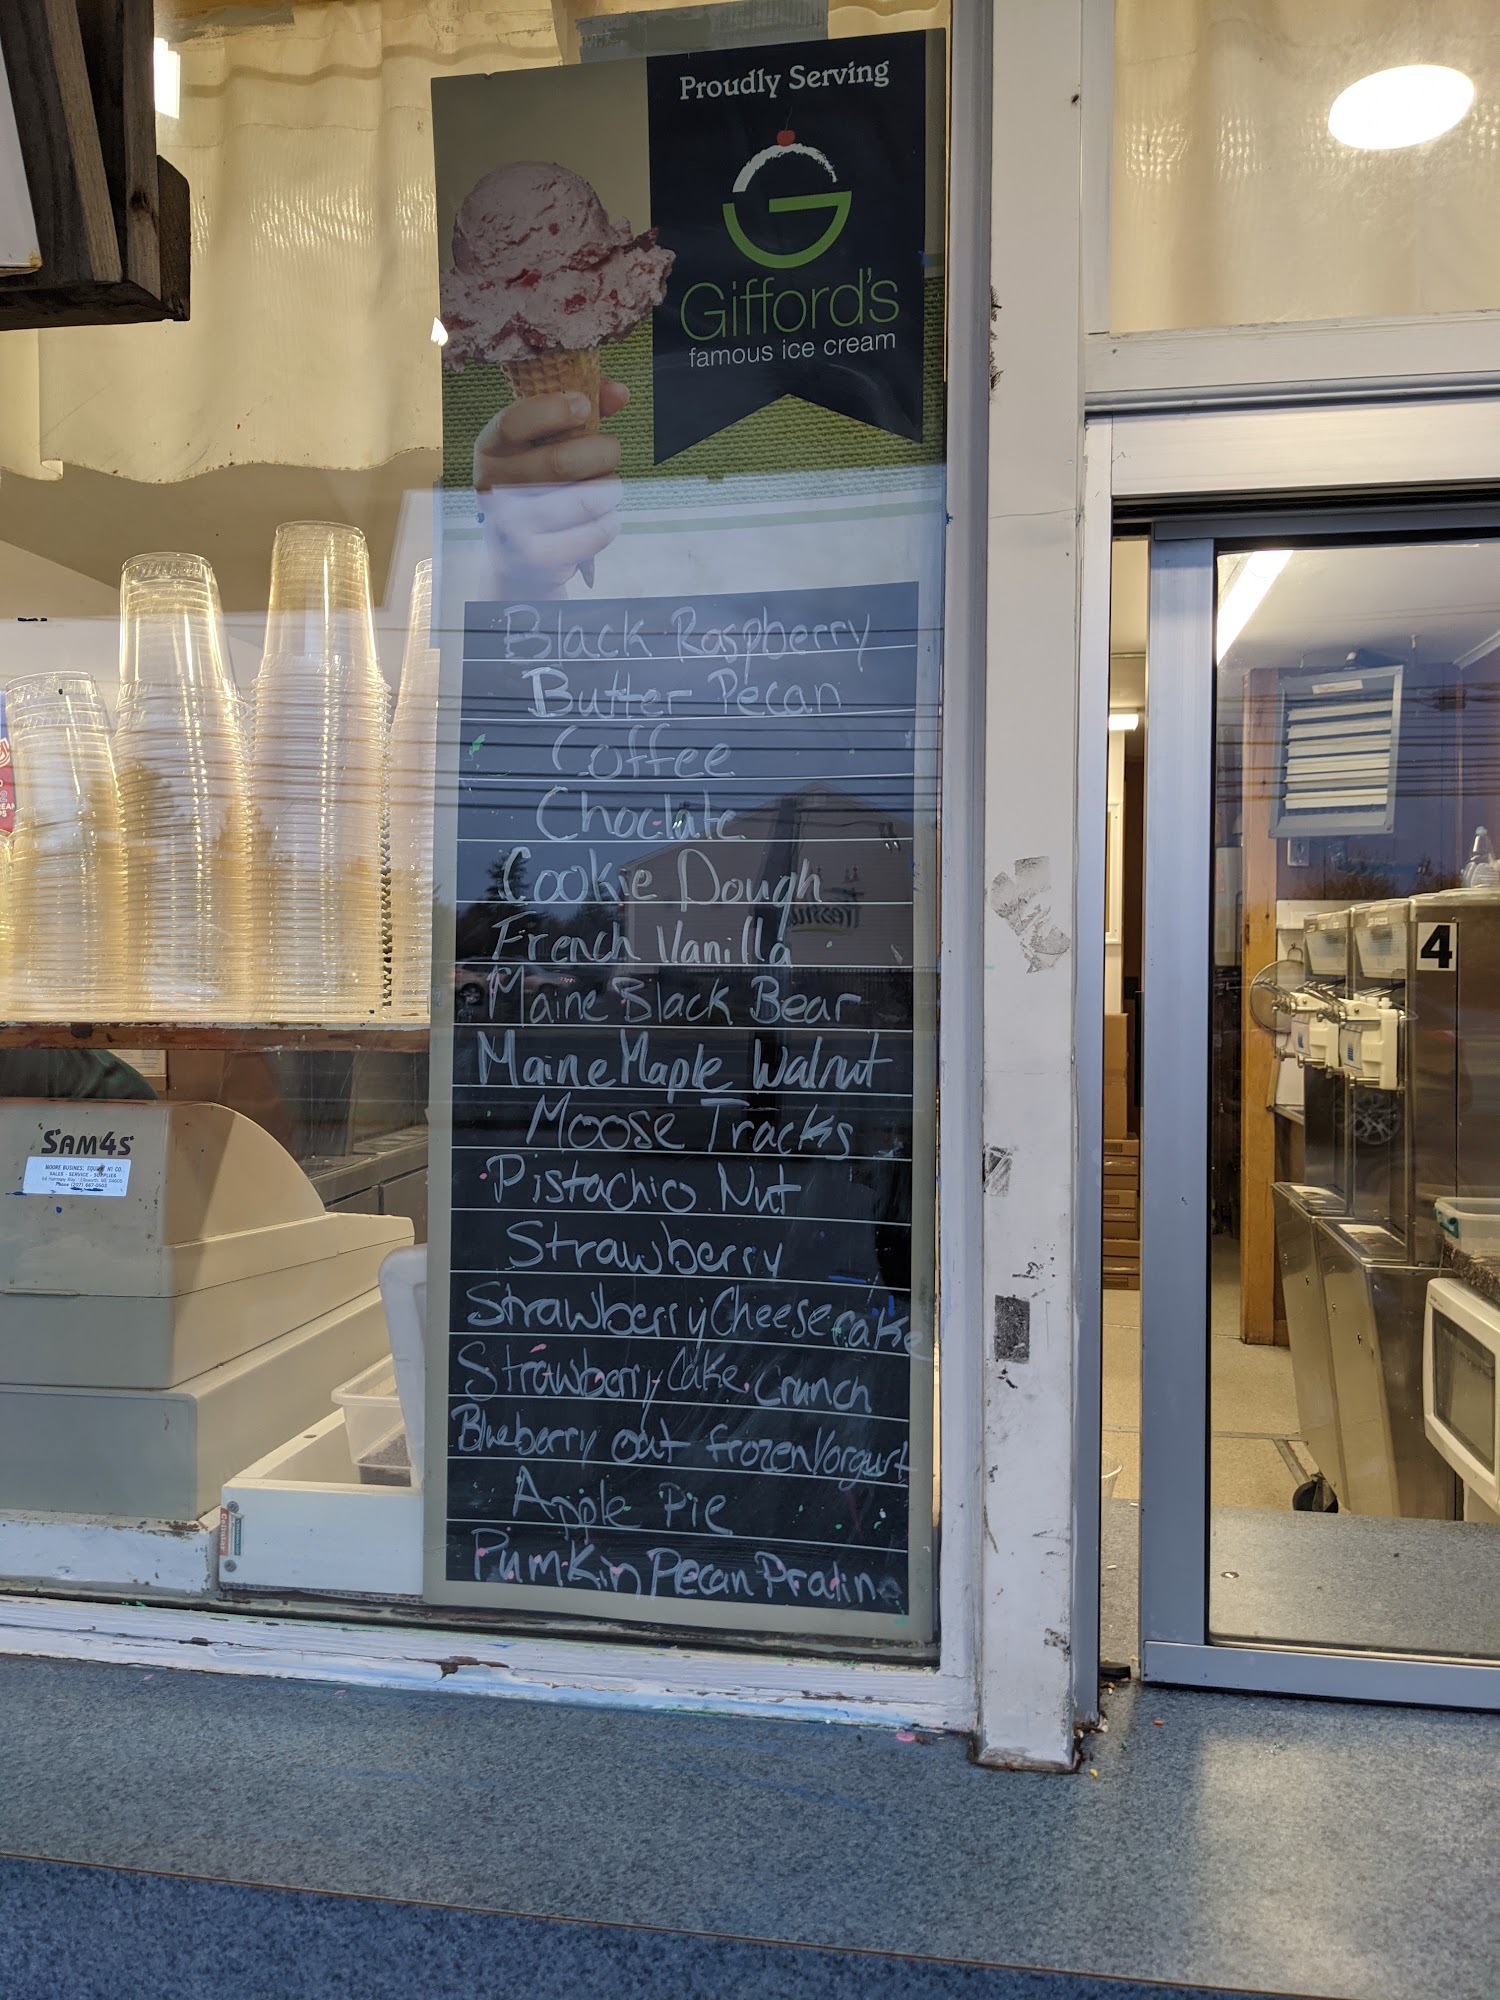 Proudly Serving
G
Gifford's
famous ice cream
Black Raspberry
Butter Pecan
Coffee
Choclate
Cookie Dough
French Vanilla
Maine Black Bear
Maine Maple Walnut
Moose Tracks
Pistachio Nut
Strawberry
Strawberry Cheesecake
Strawberry Cake Crunch
Blueberry oat frozen Yorgurt
Apple Pie
Pumkin Pecan Praline
SAM4S
SALES - SERVICE - SUPPLIES
4